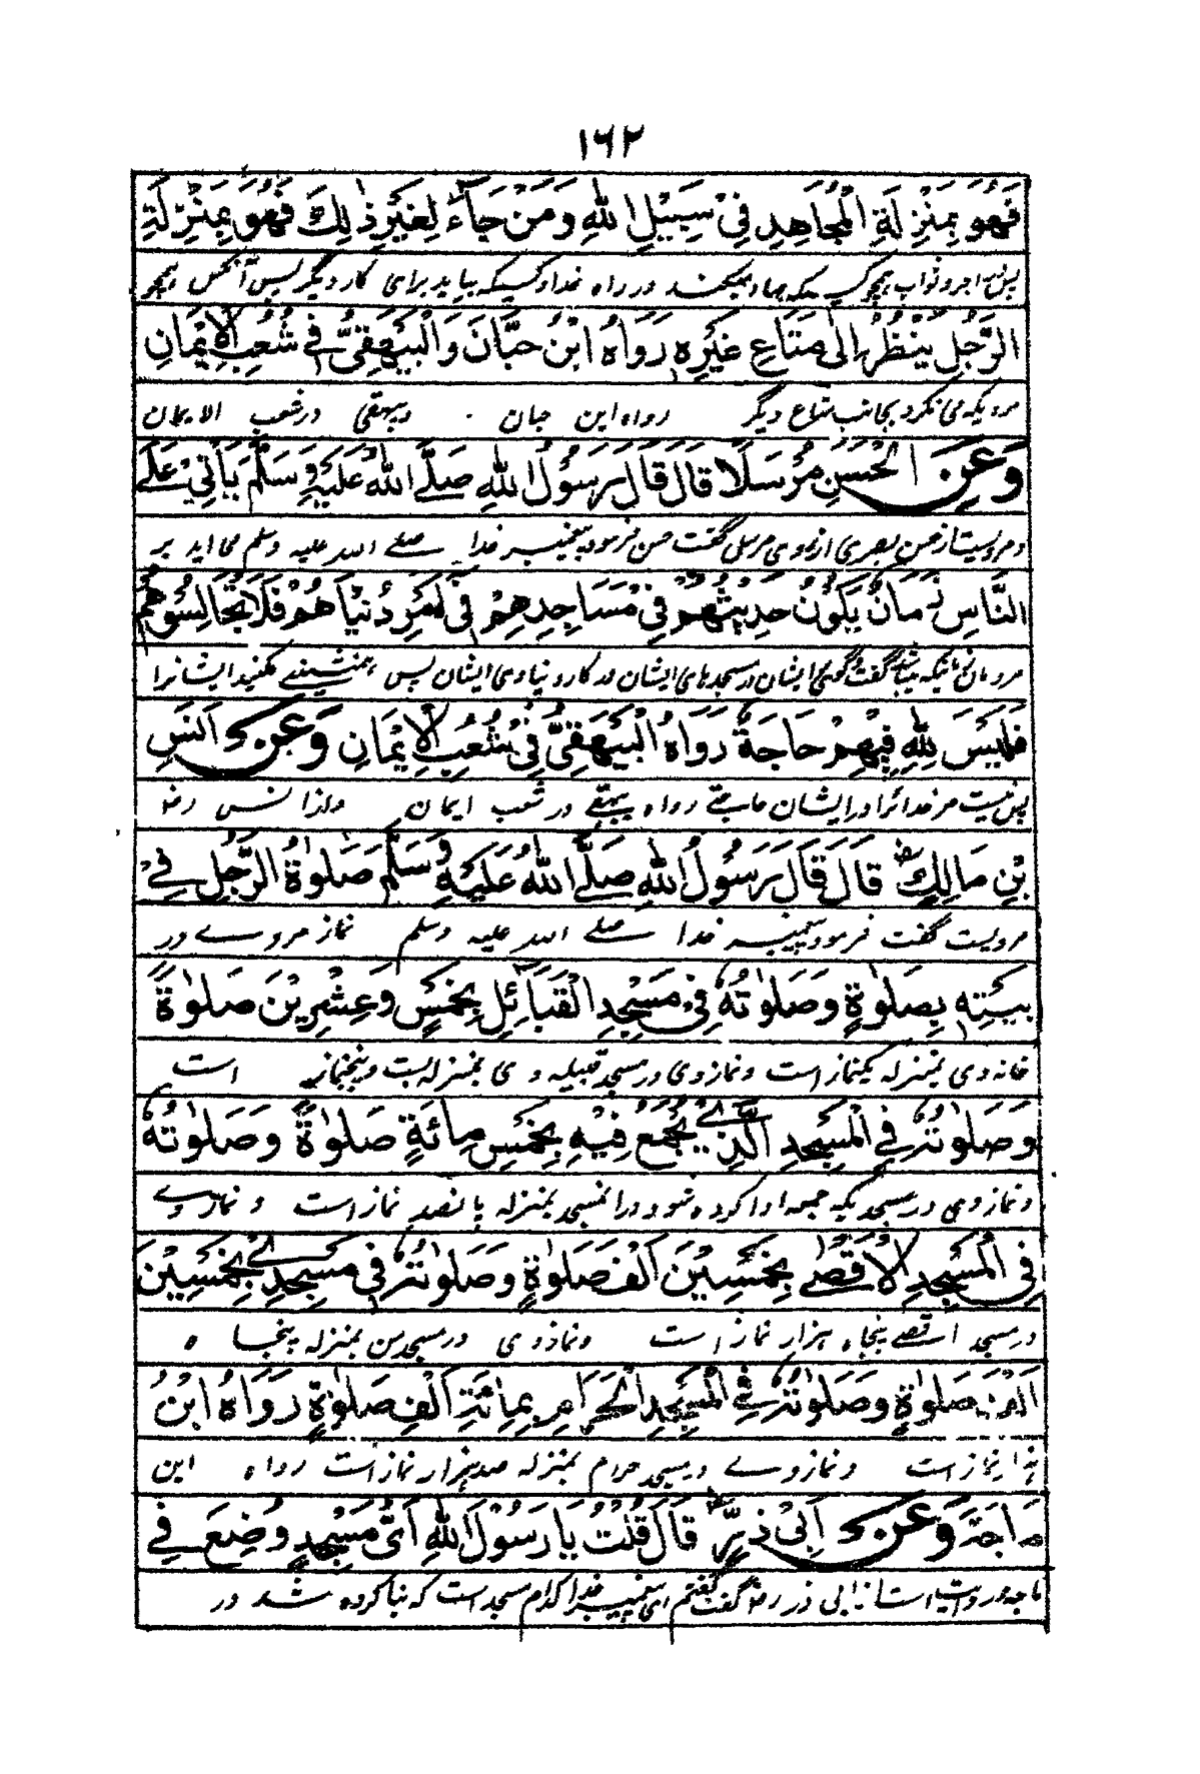 ١٦٢
فَهُوَ بِمَنْزِلَةِ الْمُجَاهِدِ فِيْ سَبِيْلِ اللهِ وَمَنْ جَاءَ لِغَيْرِ ذٰلِكَ فَهُوَ بِمَنْزِلَةِ
پس اجر و ثواب همچو کسیکه جهاد میکند در راه خدا و کسیکه بیاید برای کار دیگر پس آنکس همچو
الرَّجُلِ يَنْظُرُ اِلٰى مَتَاعِ غَيْرِهٖ رَوَاهُ ابْنُ حِبَّانَ وَالْبَيْهَقِيُّ فِيْ شُعَبِ الْاِيْمَانِ
مردیکه می نگرد بجانب متاع دیگر رواه ابن حبان وبیهقی در شعب الایمان
وَعَنِ الْحَسَنِ مُرْسَلًا قَالَ قَالَ رَسُوْلُ اللهِ صَلَّى اللهُ عَلَيْهِ وَسَلَّمَ يَأْتِيْ عَلَى
و مرویست از حسن بصری از وی مرسل گفت حسن فرمود پیغمبر خدا صلے الله علیه وسلم می آید بر
النَّاسِ زَمَانٌ يَكُوْنُ حَدِيْثُهُمْ فِيْ مَسَاجِدِهِمْ فِيْ اَمْرِ دُنْيَاهُمْ فَلَا تُجَالِسُوْهُمْ
مردمان زمانیکه باشد گفت و گوی ایشان در مسجدهای ایشان در کار دنیاوی ایشان پس همنشینی مکنید ایشانرا
فَلَيْسَ لِلّٰهِ فِيْهِمْ حَاجَةٌ رَوَاهُ الْبَيْهَقِيُّ فِيْ شُعَبِ الْاِيْمَانِ وَعَنْ اَنَسِ
پس نیست مر خدا را در ایشان حاجتے رواه بیهقے در شعب ایمان و از انس رض
بْنِ مَالِكٍ قَالَ قَالَ رَسُوْلُ اللهِ صَلَّى اللهُ عَلَيْهِ وَسَلَّمَ صَلٰوةُ الرَّجُلِ فِيْ
مرویست گفت فرمود پیغمبر خدا صلے الله علیه وسلم نماز مردے در
بَيْتِهٖ بِصَلٰوةٍ وَصَلٰوتُهٗ فِيْ مَسْجِدِ الْقَبَائِلِ بِخَمْسٍ وَعِشْرِيْنَ صَلٰوةً
خانه وی بمنزله یکنماز است و نماز وی در مسجد قبیله وی بمنزله بست و پنجنماز است
وَصَلٰوتُهٗ فِي الْمَسْجِدِ الَّذِيْ يُجَمَّعُ فِيْهِ بِخَمْسِ مِائَةِ صَلٰوةً وَصَلٰوتُهٗ
و نماز وی در مسجدیکه جمعه ادا کرده شود در انمسجد بمنزله پانصد نماز است و نماز وے
فِي الْمَسْجِدِ الْاَقْصٰى بِخَمْسِيْنَ اَلْفَ صَلٰوةٍ وَصَلٰوتُهٗ فِيْ مَسْجِدِيْ بِخَمْسِيْنَ
در مسجد اقصے پنجاه هزار نماز است و نماز وی در مسجد من بمنزله پنجاه
اَلْفَ صَلٰوةٍ وَصَلٰوتُهٗ فِي الْمَسْجِدِ الْحَرَامِ بِمِائَةِ اَلْفِ صَلٰوةٍ رَوَاهُ ابْنُ
هزار نماز است و نماز وے در مسجد حرام بمنزله صد هزار نماز است رواه ابن
مَاجَةَ وَعَنْ اَبِيْ ذَرٍّ قَالَ قُلْتُ يَا رَسُوْلَ اللهِ اَيُّ مَسْجِدٍ وُضِعَ فِيْ
ماجه و روایت است از ابی ذر رض گفت گفتم ای پیغمبر خدا کدام مسجد است که بنا کرده شد در